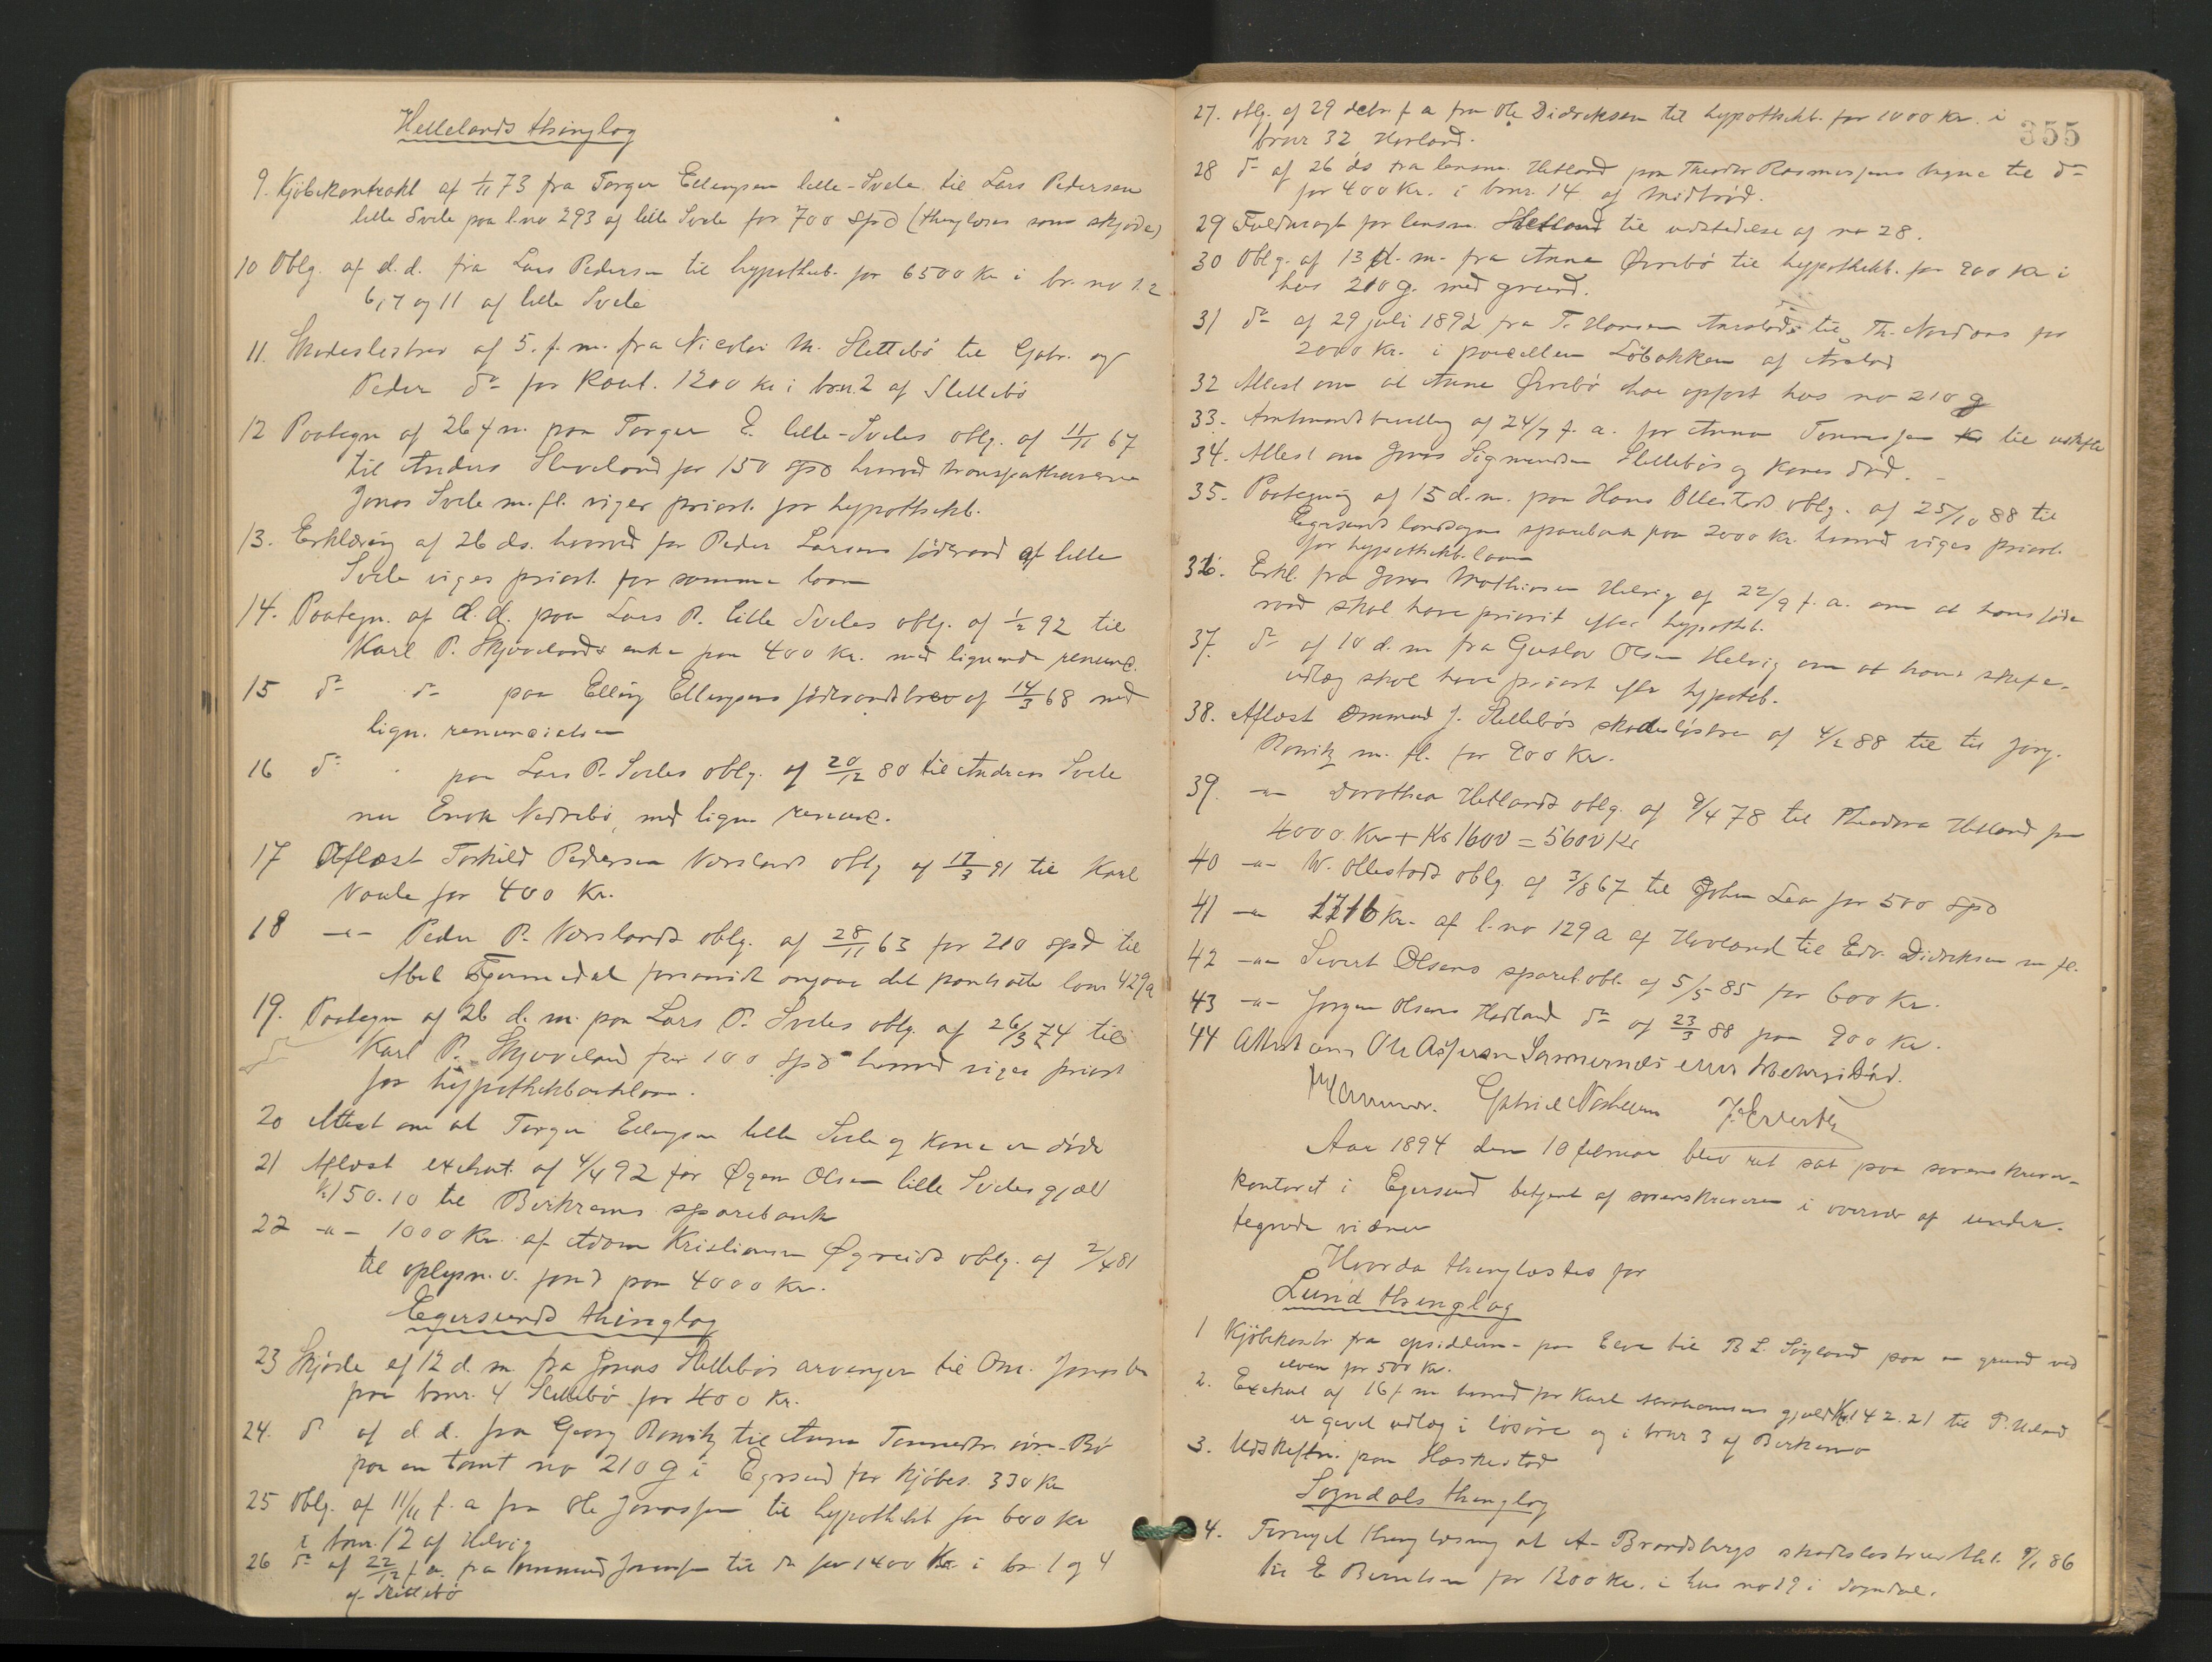 Hellelands thinglag
9. Kjöbekontrakt af 1/11 73 fra Torger Ellingsen lille-Svele til Lars Pedersen
lille Svele paa l.no 293 af lille Svele for 700 Spd (thinglæses som skjøde)
10 Oblg. af d.d. fra Lars Pedersen til hypothekb. for 6500 Kr i br. no 1.2
6,7 og 11 af lille Svele
11. Skadeslesbrev af 5. f.m. fra Nicolai M. Slettebö til Gabr. og
Peder do for Kaut. 1200 Kr i brn. 2 af Slettebö
12 Paategn af 26 f m. paa Torger E. lille-Sveles oblg. af 11/11 67
til Anders Skeveland for 150 spd hvorved transporthaverne
Jonas Svele m. fl. viger priort. for hypothekb.
13. Erklæring af 26 ds. hvorved for Peder Larsens föderaad af lille
Svele viges priort. for samme laan
14. Paategn. af d. d. paa Lars P. lille Sveles oblg. af 1/2 92 til
Karl P. Skjævelands enke paa 400 Kr. med lignende renunc.
15 do do paa Elling Ellingsens föderaadsbrev af 14/3 68 med
lign. renunciation
16 do paa Lars P. Sveles oblg. af 20/12 80 til Andreas Svele
nu Enok Nedrebö, med lign renunc.
17 Aflæst Torkild Pedersen Vørslands oblg af 17/3 91 til Karl
Vaule for 400 Kr.
18 -"- Peder P. Vørslands oblg. af 28/11 63 for 210 spd til
Abel Gjermedal forsaavidt angaar det pantsatte lno 429a
19. Paategn af 26 d. m. paa Lars P. Sveles oblg. af 26/3 74 til
Karl P. Skjæveland for 100 Spd hvorved viges priort
for hypothekbanklaan.
20 Attest om at Torger Ellingsen lille Svele og Kone er døde
21 Aflæst exekut. af 4/4 92 for Øgen Olsen lille Sveles gjæld
Kr 150.10 til Birkrems sparebank
22 -"- 1000 Kr. af Adam Kristiansen Øgreids oblg. af 2/4 81
til oplysn. v. fond paa 4000 Kr.
Egersunds thinglag
23 Skjøde af 12 d. m. fra Jonas Slettebös arvinger til Om. Jonassen
paa brnr. 4 Slettebö for 400 Kr.
24. do af d d. fra Georg Rowitz til Anna Tonnesdtr. övre-Bö
paa en tomt no 210 g i Egersund for kjöbes. 330 Kr
25 Oblg. af 11/11 f. a fra Ole Jonassen til hypothekb for 600 Kr
i brnr. 12 af Helvig
26 do af 22/12 f. a. fra Ommund Jonassen til do for 1400 Kr. i br. 1 og 4
af Slettebö
355
27. oblg. af 29 decbr f a fra Ole Didriksen til hypothekb. for 1000 Kr. i
brnr 32 Hovland.
28 do af 26 ds fra lensm. Hetland paa Theodor Rasmussens vegne til do
for 400 Kr. i brnr. 14 af Midbröd.
29 Fuldmagt for lensm. Hetland til udstedelse af no 28.
30 Oblg. af 13 d. m. fra Anna Øvrebö til hypothekb. for 900 Kr i
hus 210 g. med grund.
31 do af 29 juli 1892 fra T. Hansen Aarstad til Th. Nordaas for
2000 Kr. i parcellen Löbakken af Årstad
32 Attest om at Anna Øvrebö har opfört hus no 210 g
33. Amtmandsbevilling af 24/7 f. a. for Anna Tonnessen til uskifte
34. Attest om Jonas Sigmundsen Slettebös og Kones död.
35. Paategning af 15 d. m. paa Hans Ollestads oblg. af 25/10 88 til
Egersunds landsogns sparebank paa 2000 Kr. hvorved viges priort.
for hypothekb. laan
36. Erkl. fra Jonas Mathiasen Helvig af 22/9 f. a. om at hans föde
raad skal have priorit efter hypothb.
37. do af 10 d. m fra Gustav Olsen Helvig om at hans skifte-
udlæg skal have priort efter hypothb.
38. Aflæst Ommund J. Slettebös skadeslösbrev af 4/2 88 til til Jörg.
Rowitz m. fl. for 900 Kr.
39. -"- Dorothea Hetlands oblg. af 9/4 78 til Theodora Hetland for
4000. Kr + Kr 1600 = 5600 Kr
40 -"- W. Ollestads oblg. af 3/8 67 til John Lea for 500 Spd
41 -"- 1716 Kr. af l. no 129a af Hovland til Edv. Didriksen m fl.
42 -"- Sivert Olsens spareb. obl. af 5/5 85 for 600 Kr.
43 -"- Jörgen Olsens Hadland do af 23/3 88 paa 900 Kr.
44 Attest om Ole Aspersen
Gabriel
Aar 1894 den 10 februar blev ret sat paa sorenskriver-
kontoret i Egersund betjent af sorenskriveren i overvær af under-
tegnede vidner
Hvorda thinglæstes for
Lund thinglag
1 Kjöbekontr. fra opsiddern- paa Eeve til B L. Söyland paa en grund ved
elven for 500 Kr.
2. Exekut af 16 f m hvorved for Karl gjæld Kr 142.21 til P. Ueland
er gjort udlæg i lösöre og i brnr 3 af
3. Udskiftn. paa Hæskestad
Sogndals thinglag
4. Fornyet thinglæsning at A. Brandsbergs skadeslösbrev 86
til E Berntsen for 1200 Kr. i hus no 19 i Sogndal.